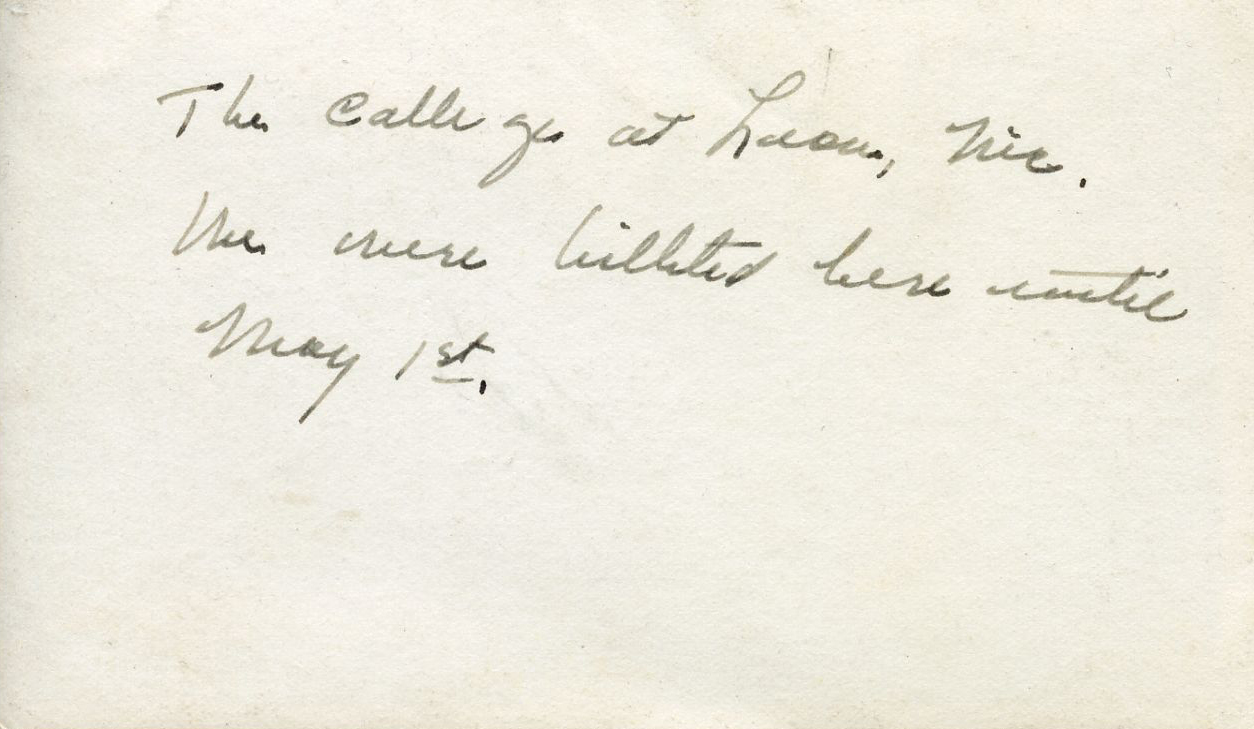 The College at Leon, Nic.
We were billeted here until
May 1st.